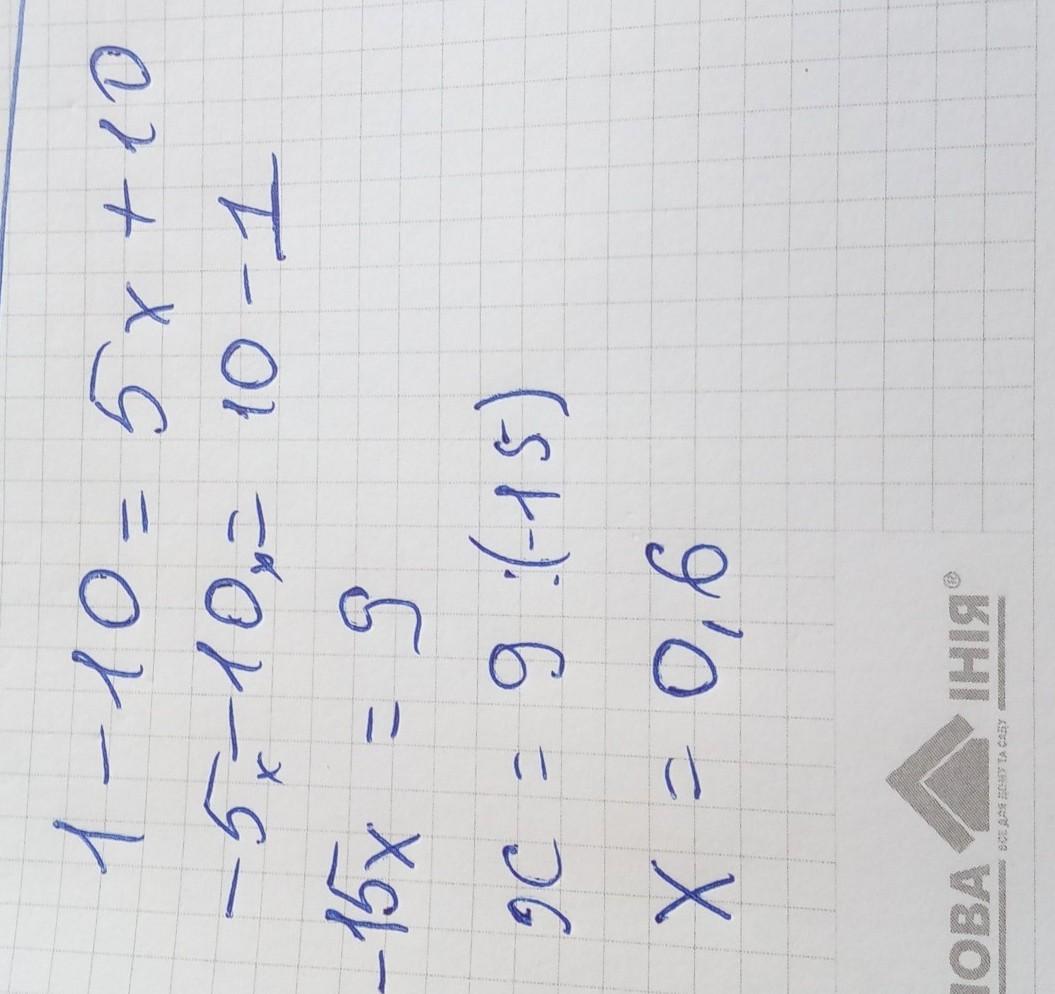 1 - 10 = 5x + 10
-5x - 10x = 10 - 1
-15x = 9
x = 9 : (-15)
x = 0,6
НОВА ЛІНІЯ®
ВСЕ ДЛЯ ДОМУ ТА САДУ